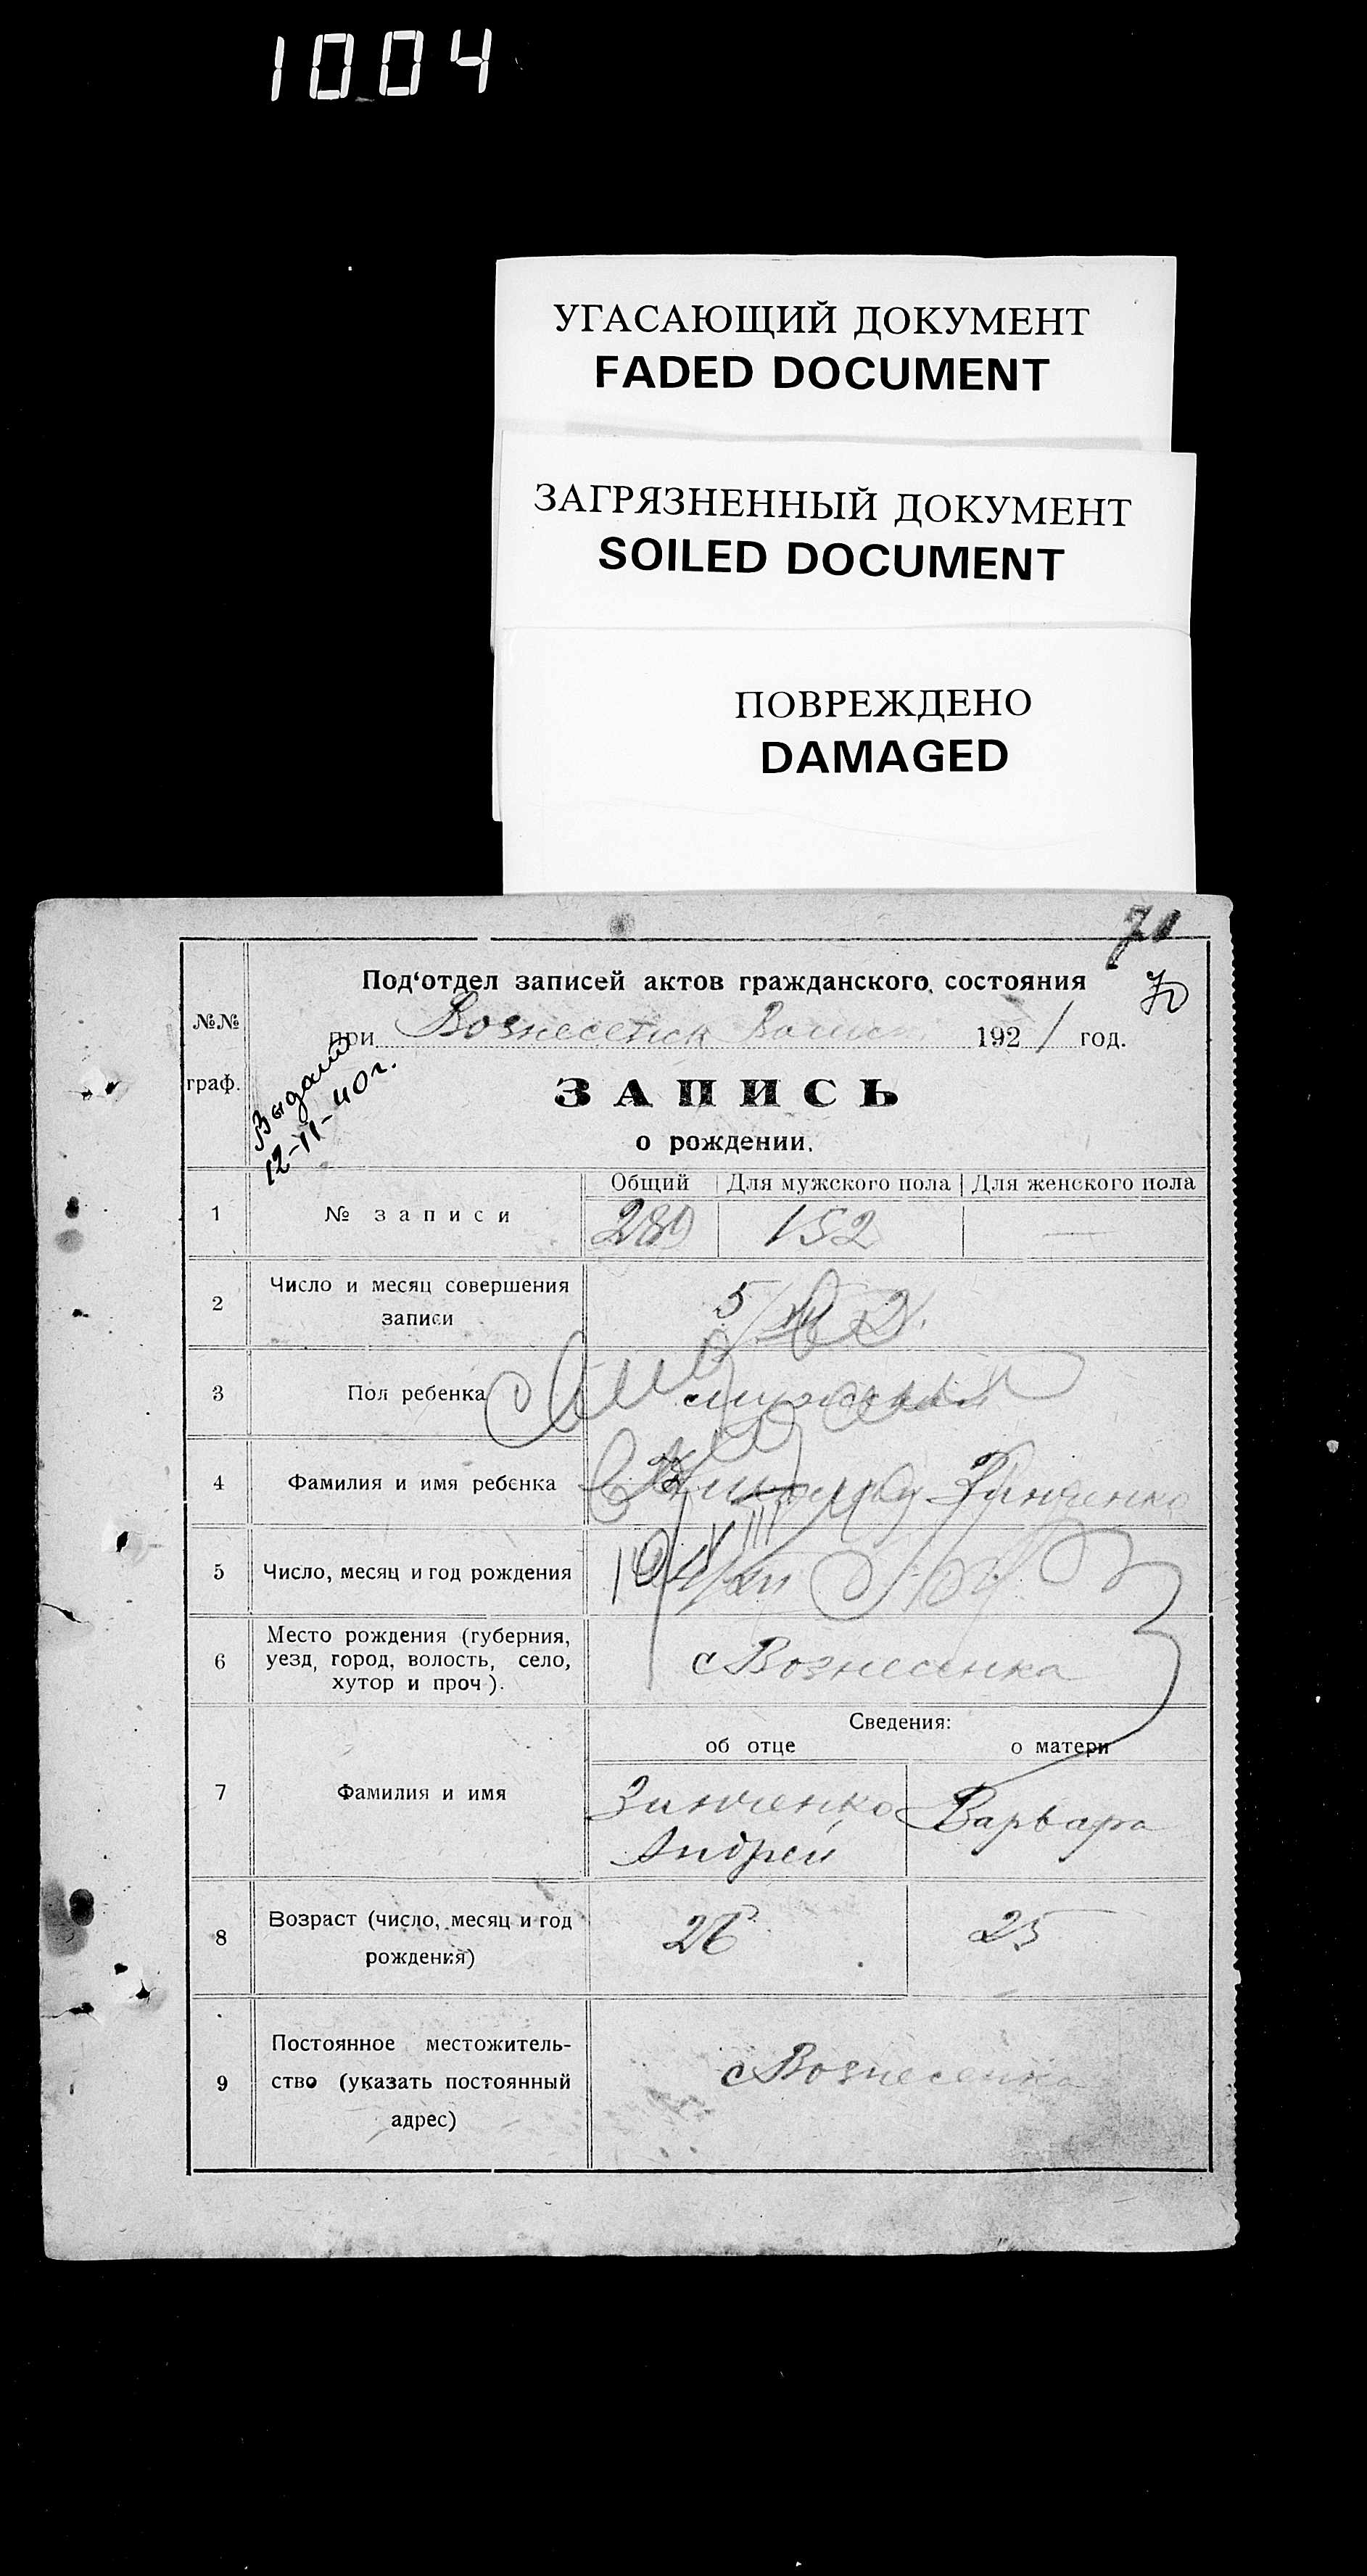 1004
УГАСАЮЩИЙ ДОКУМЕНТ
FADED DOCUMENT
ЗАГРЯЗНЕННЫЙ ДОКУМЕНТ
SOILED DOCUMENT
ПОВРЕЖДЕНО
DAMAGED
71
70
Под‘отдел записей актов гражданского состояния
№№ граф.
при Вознесенск 1921 год.
Выдано
12-11-40 г.
ЗАПИСЬ
о рождении.
Общий Для мужского пола Для женского пола
1 № записи 289 152 —
2 Число и месяц совершения
записи 5
3 Пол ребенка мужской
4 Фамилия и имя ребенка Зинченко
5 Число, месяц и год рождения
6 Место рождения (губерния,
уезд, город, волость, село,
хутор и проч). с Вознесенка
Сведения:
об отце о матери
7 Фамилия и имя Зинченко Варвара
Андрей
8 Возраст (число, месяц и год
рождения) 26 25
9 Постоянное местожитель-
ство (указать постоянный
адрес) с Вознесенка